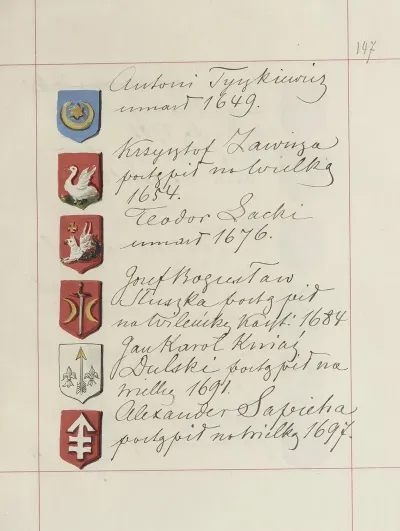 147
Antoni Tyszkiewicz
umarł 1649.
Krzysztof Zawisza
postąpił na wielką
1654.
Teodor Lacki
umarł 1676.
Józef Bogusław
Słuszka postąpił
na Wileńską Kaszt. 1684
Jan Karol Kniaź
Dulski postąpił na
wielką 1691.
Alexander Sapieha
postąpił na wielką 1697.